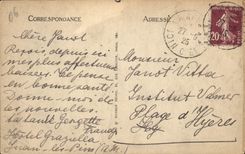 06
CORRESPONDANCE
ADRESSE
Chère Janot
Reçois, depuis ici
mes plus affectueux
baisers. Je pense
en bonne santé
Donne-moi de
tes nouvelles.
Ta tante Georgette
Hôtel Graziella
Juan-les-Pins (A.M.)
Monsieur
Janot Vitta
Institut Valmer
Plage d'Hyères
20